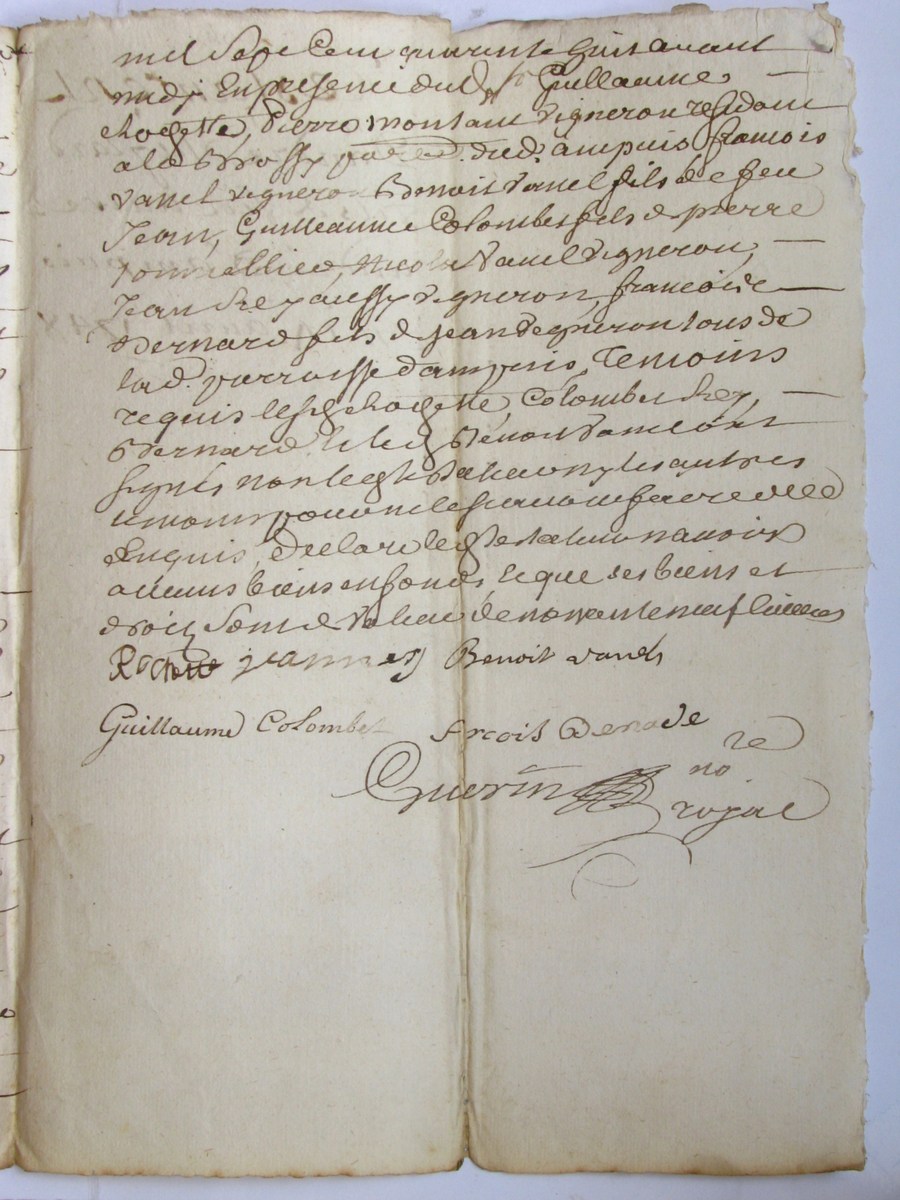 mil Sept Cent quarente huit avant
midy En presence dud. Sr Guillaume
chogette, Pierre montant vigneron residant
a la Brosse parr. dud. ampuis françois
vanel vigneron Benoit vanel fils de feu
Jean, Guilleaume Colombet fils de pierre
tonnellier, Nicolas vanel vigneron,
Jean vigneron, francois
Bernard fils de Jean vigneron tous de
lad. parroisse dampuis, Temoins
requis led. chogette, Colombet
Bernard, & led. Benoit vanel ont
signés non led. testateur ny les autres
temoins pour ne le scavoir faire de ce
Enquis, Declare led. testateur n'avoir
aucuns biens en fonds, & que ses biens et
droits sont de valeur de nonente neuf livres
Benoit vanel
Guillaume Colombet frcois
Guerin no re
royal